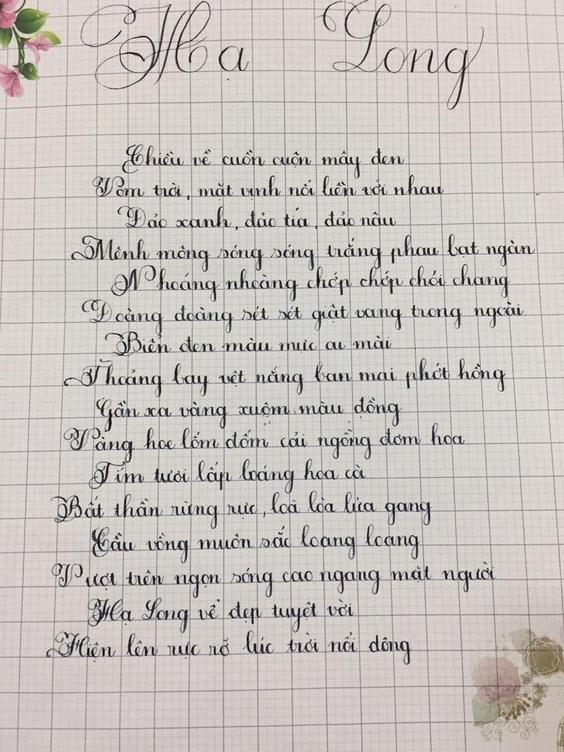 Hạ Long
Chiều về cuồn cuộn mây đen
Vòm trời, mặt vịnh nối liền với nhau
Đảo xanh, đảo tía, đảo nâu
Mênh mông sóng sóng trắng phau bạt ngàn
Nhoáng nhoàng chớp chớp chói chang
Đoàng đoàng sét sét giật vang trong ngoài
Biển đen màu mực ai mài
Thoảng bay vệt nắng ban mai phớt hồng
Gần xa vàng xuộm màu đồng
Vàng hoe lốm đốm cải ngồng đơm hoa
Tím tươi lấp loáng hoa cà
Bất thần rừng rực, loà loà lửa gang
Cầu vồng muôn sắc loang loang
Vượt trên ngọn sóng cao ngang mặt người
Hạ Long vẻ đẹp tuyệt vời
Hiện lên rực rỡ lúc trời nổi dông